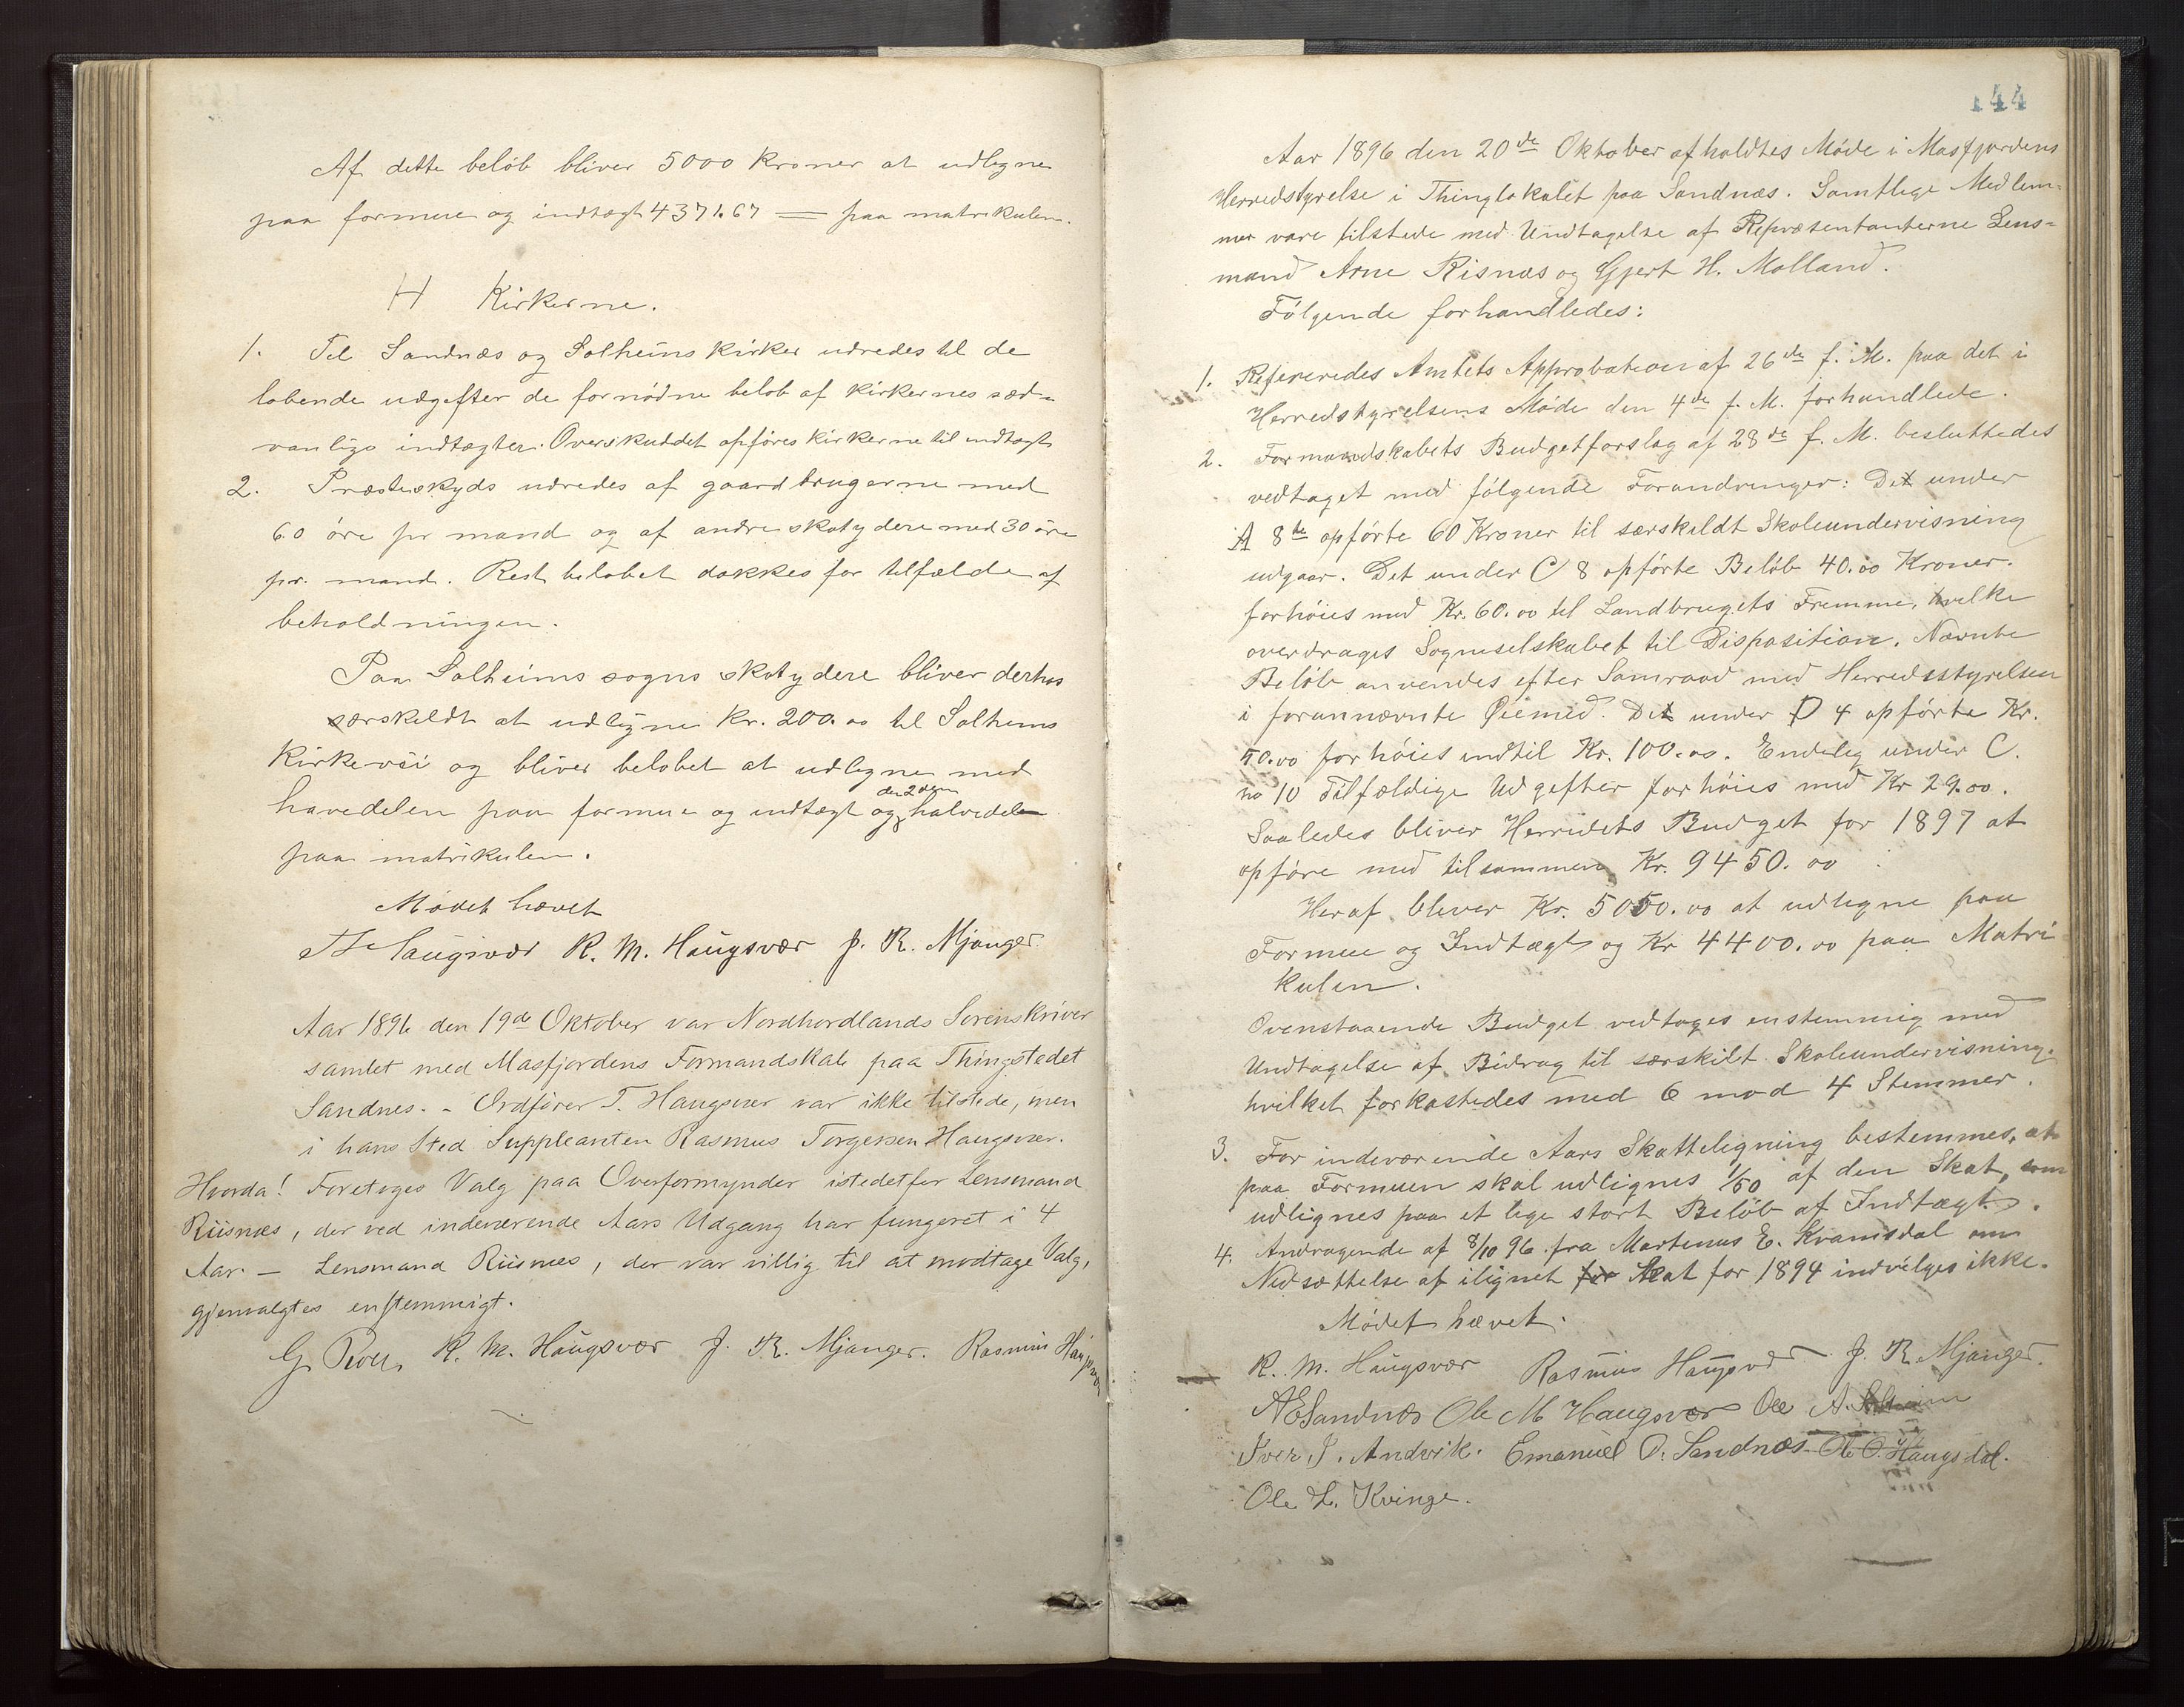 Af dette beløb bliver 5000 kroner at udligne
paa formue og indtægt 4371.67 = paa matrikulen.
H Kirkerne.
1. Til Sandnæs og Solheims kirker udredes til de
løbende udgifter de fornødne beløb af kirkernes sæd-
vanlige indtægter. Overskuddet opføres kirkerne til indtægt
2. Præsteskyds udredes af gaardbrugerne med
60 øre pr mand og af andre skatydere med 30 øre
pr. mand. Restbeløbet dækkes for tilfælde af
beholdningen.
Paa Solheims sogns skatydere bliver derhos
særskildt at udligne Kr. 200.00 til Solheims
Kirkevei og bliver beløbet at udligne med
den 2den
havedelen paa formue og indtægt og halvedelen
paa matrikulen.
Mødet hævet
T Haugsvær R. M. Haugsvær J. R. Mjanger.
Aar 1896 den 19de Oktober var Nordhordlands Sorenskriver
samlet med Masfjordens Formandskab paa Thingstedet
Sandnes. - Ordfører T. Haugsvær var ikke tilstede, men
i hans Sted Suppleanten Rasmus Torgersen Haugsvær.
Hvorda! Foretoges Valg paa Overformynder istedetfor Lensmand
Riisnæs, der ved indeværende Aars Udgang har fungeret i 4
Aar - Lensmand Riisnæs, der var villig til at modtage Valg,
gjenvalgtes enstemmigt.
G. R. M. Haugsvær J. R. Mjanger. Rasmus Haugsvær
144
Aar 1896 den 20de Oktober afholdtes Møde i Masfjordens
Herredstyrelse i Thinglokalet paa Sandnæs. Samtlige Medlem-
mer vare tilstede med Undtagelse af Repræsentanterne Lens-
mand Arne Risnæs og Gjert H. Molland.
Følgende forhandledes:
1. Refereredes Amtets Approbation af 26de f. M. paa det i
Herredstyrelsens Møde den 4de f. M. forhandlede.
2. Formandskabets Budgetforslag af 28de f. M. besluttedes
vedtaget med følgende Forandringer: Det under
A 8de opførte 60 Kroner til særskildt Skoleundervisning
udgaar. Det under C 8 opførte Beløb 40.00 Kroner.
forhøies med Kr. 60.00 til Landbrugets Fremme, hvilke
overdrages Sogneselskabet til Disposition. Nævnte
Beløb anvendes efter Samraad med Herredsstyrelsen
i forannævnte Øiemed. Det under D 4 opførte Kr.
50.00 forhøies indtil Kr. 100.00. Endelig under C.
no 10 Tilfældige Udgifter forhøies med Kr 29.00.
Saaledes bliver Herredets Budget for 1897 at
opføre med tilsammen Kr. 9450.00
Heraf bliver Kr. 5050.00 at udligne paa
Formue og Indtægt og Kr 4400.00 paa Matri
kulen.
Ovenstaaende Budget vedtages enstemmig med
Undtagelse af Bidrag til særskilt Skoleundervisning.
hvilket forkastedes med 6 mod 4 Stemmer.
3. For indeværende Aars Skatteligning bestemmes, at
paa Formuen skal udlignes 1/50 af den Skat, som
udlignes paa et lige stort Beløb af Indtægt.
4. Andragende af 8/10 96 fra Martinus E. Kvamsdal om
Nedsættelse af ilignet for Skat for 1894 indvilges ikke.
Mødet hævet.
R. M. Haugsvær Rasmus Haugsvær J. R. Mjanger.
A E Sandnæs Ole M Haugsvær Ole A. Solheim
Iver J. Andvik. Emanuel O. Sandnæs Ole O. Haugsdal.
Ole L. Kvinge.